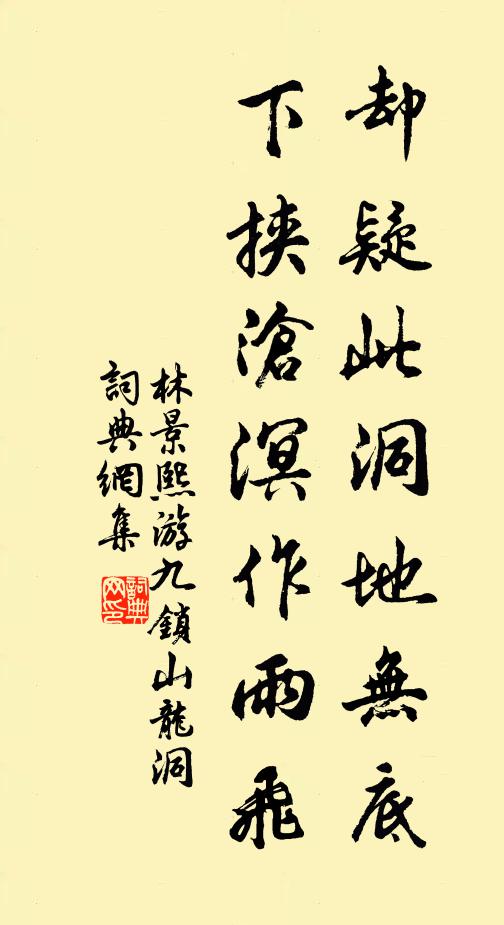 却疑此洞地無底
下挾滄溟作雨飛
林景熙游九鎖山龍洞
詞典網集
詞典網印